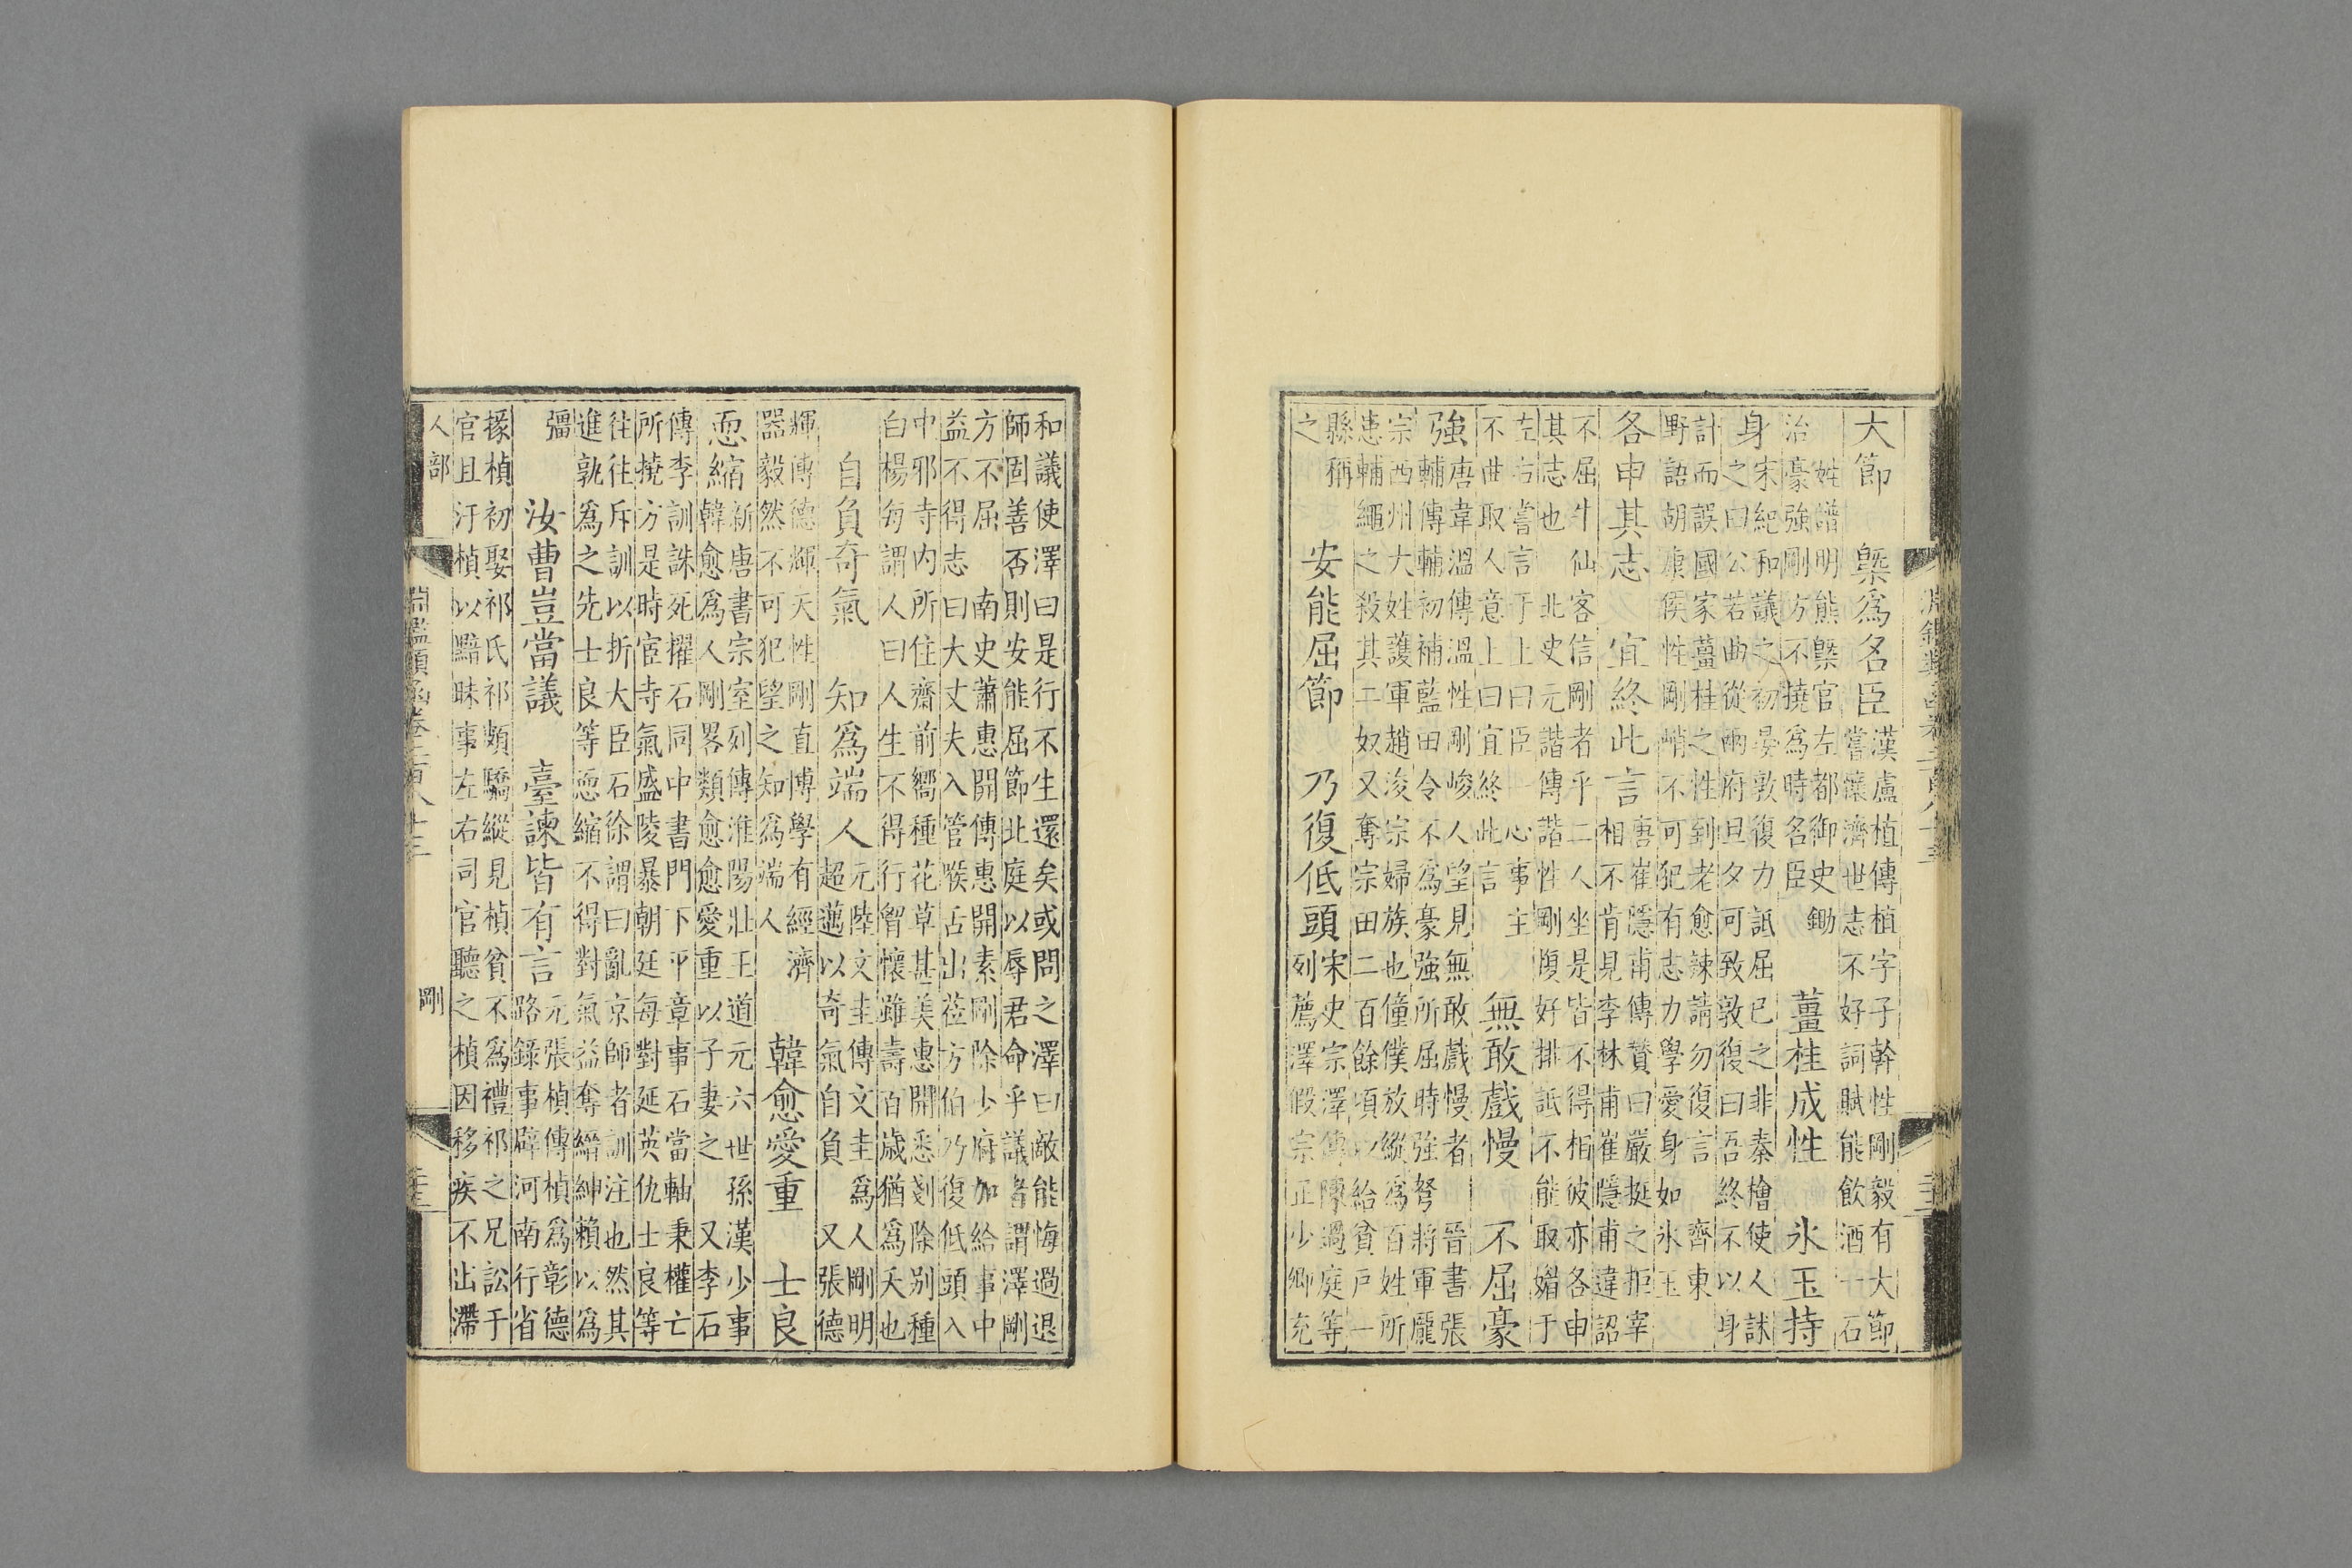 大節　槩爲名臣
漢盧植傳植字子幹性剛毅有大節
嘗懷濟世志不好詞賦能飲酒一石
姓譜明熊槩官左都御史鋤
治豪強剛方不撓爲時名臣
薑桂成性　氷玉持
身
宋紀和議之初晏敦復力詆屈已之非秦檜使人訹
之曰公若曲從兩府旦夕可致敦復曰吾終不以身
計而誤國家薑桂之性到老愈辣請勿復言　齊東
野語胡康侯性剛峭不可犯有志力學愛身如氷玉
各申其志　宜終此言
唐崔隱甫傳贊曰嚴挺之拒宰
相不肯見李林甫崔隱甫違詔
不屈牛仙客信剛者乎二人坐是皆不得相彼亦各申
其志也　北史元諧傳諧性剛愎好排詆不能取媚于
左右嘗言于上曰臣一心事主
不曲取人意上曰宜終此言
無敢戲慢　不屈豪
強
唐韋溫傳溫性剛峻人望見無敢戲慢者　晉書張
輔傳輔初補藍田令不爲豪強所屈時強弩將軍龐
宗西州大姓護軍趙浚宗婦族也僮僕放縱爲百姓所
患輔繩之殺其二奴又奪宗田二百餘頃以給貧戸一
縣稱
之
安能屈節　乃復低頭
宋史宗澤傳陳過庭等
列薦澤假宗正少卿充
和議使澤曰是行不生還矣或問之澤曰敵能悔過退
師固善否則安能屈節北庭以辱君命乎議者謂澤剛
方不屈　南史蕭惠開傳惠開素剛除少府加給事中
益不得志曰大丈夫入管喉舌出莅方伯乃復低頭入
中邪寺内所住齋前嚮種花草甚美惠開悉剗除别種
白楊每謂人曰人生不得行胷懷雖壽百歲猶爲夭也
自負奇氣　知爲端人
元陸文圭傳文圭爲人剛明
超邁以奇氣自負　又張德
輝傳德輝天性剛直博學有經濟
器毅然不可犯望之知爲端人
韓愈愛重　士良
恧縮
新唐書宗室列傳淮陽壯王道元六世孫漢少事
韓愈爲人剛畧類愈愈愛重以子妻之　又李石
傳李訓誅死擢石同中書門下平章事石當軸秉權亡
所撓方是時宦寺氣盛陵暴朝廷每對延英仇士良等
往往斥訓以折大臣石徐謂曰亂京師者訓注也然其
進孰爲之先士良等恧縮不得對氣益奪縉紳賴以爲
彊
汝曹豈當議　臺諫皆有言
元張楨傳楨爲彰德
路錄事辟河南行省
掾楨初娶祁氏祁頗驕縱見楨貧不爲禮祁之兄訟于
官且汙楨以黯昧事左右司官聽之楨因移疾不出滯
人部
剛
淵鑑類函卷二百八十三